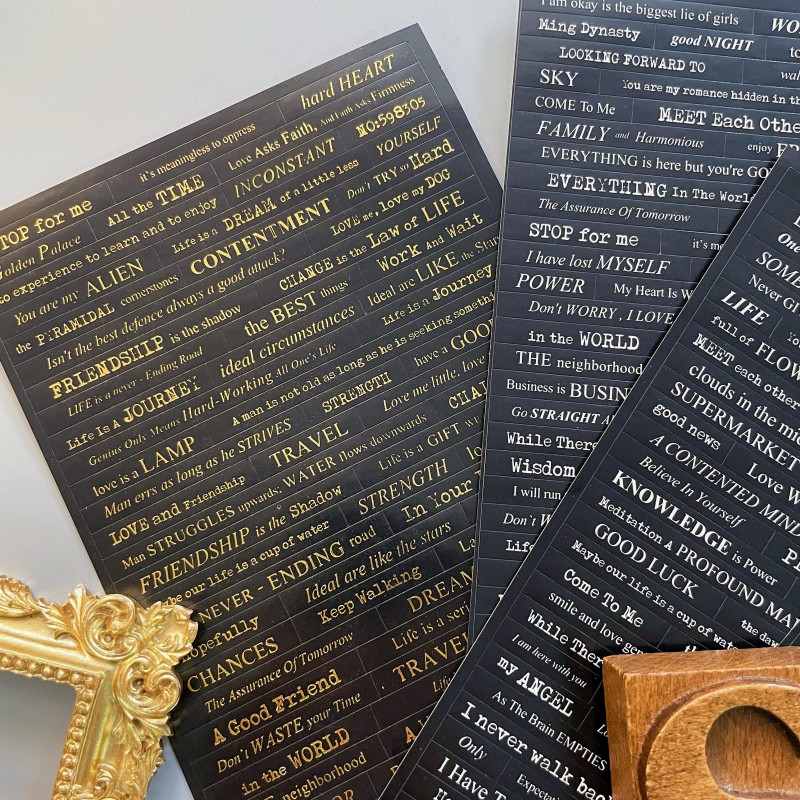 hard HEART
it's meaningless to oppress
Love Asks Faith, And Faith Asks Firmness
STOP for me
All the TIME
INCONSTANT
NO:598305
Golden Palace
to experience to learn and to enjoy
YOURSELF
Life is a DREAM of a little less
Don't TRY so Hard
You are my ALIEN
CONTENTMENT
LOVE me, love my DOG
the PYRAMIDAL cornerstones
CHANGE is the Law of LIFE
Isn't the best defence always a good attack?
Work And Wait
FRIENDSHIP is the shadow
the BEST things
Ideal are LIKE the Stars
LIFE is a never - Ending Road
ideal circumstances
Life is a Journey
Life Is A JOURNEY
Hard-Working All One's Life
Genius Only Means
A man is not old as long as he is seeking something
love is a LAMP
STRENGTH
have a GOOD
Man errs as long as he STRIVES
TRAVEL
Love me little, love
LOVE and Friendship
WATER flows downwards
Man STRUGGLES upwards;
Life is a GIFT
FRIENDSHIP is the Shadow
STRENGTH
Maybe our life is a cup of water
In Your
NEVER - ENDING road
Ideal are like the stars
Hopefully
Keep Walking
CHANCES
DREAM
The Assurance Of Tomorrow
Life is a
A Good Friend
TRAVEL
Don't WASTE your Time
in the WORLD
neighborhood
I am okay is the biggest lie of girls
Ming Dynasty
good NIGHT
LOOKING FORWARD TO
SKY
You are my romance hidden in the
COME To Me
MEET Each Other
FAMILY and Harmonious
enjoy
EVERYTHING is here but you're
EVERYTHING In The World
The Assurance Of Tomorrow
STOP for me
it's
I have lost MYSELF
POWER
My Heart Is
Don't WORRY, I LOVE
in the WORLD
THE neighborhood
Business is
Go STRAIGHT
While There
Wisdom
I will run
Don't
Life
One
Never
LIFE
full of
MEET each other
clouds in the
SUPERMARKET
good news
Love
A CONTENTED MIND
Believe In Yourself
KNOWLEDGE is Power
Meditation A PROFOUND
GOOD LUCK
Maybe our life is a cup of water
the
Come To Me
smile and love
While There
I am here with you
my ANGEL
As The Brain EMPTIES
I never walk back
Only
I Have